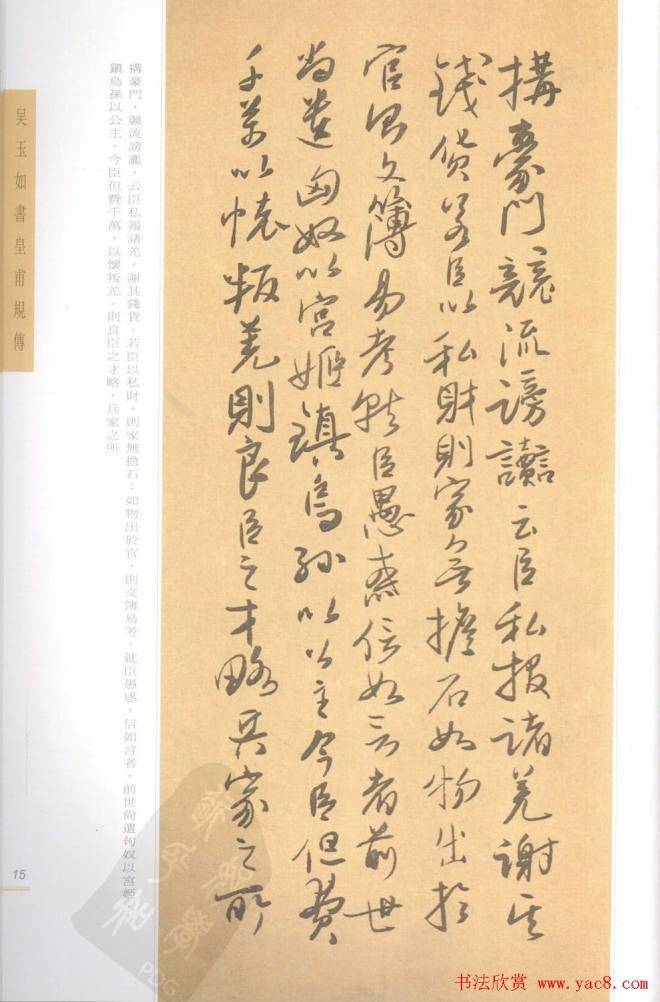 搆豪門競流謗讟云臣私报諸羌謝其
錢货若臣以私財則家無擔石如物出於
官則文簿易考就臣愚惑信如言者前世
尚遺匈奴以宮姬鎮烏孫以公主今臣但費
千萬以懷叛羌則良臣之才略兵家之所
搆豪門，競流謗讟，云臣私報諸羌，謝其錢貨。若臣以私財，則家無擔石；如物出於官，則文簿易考。就臣愚惑，信如言者，前世尚遺匈奴以宮姬，
鎮烏孫以公主。今臣但費千萬，以懷叛羌。則良臣之才略，兵家之所
吴玉如書皇甫規傳
15
PDG
书法欣赏 www.yac8.com